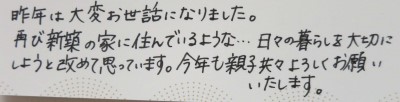 昨年は大変お世話になりました。
再び新築の家に住んでいるような…日々の暮らしを大切に
しようと改めて思っています。今年も親子共々よろしくお願い
いたします。